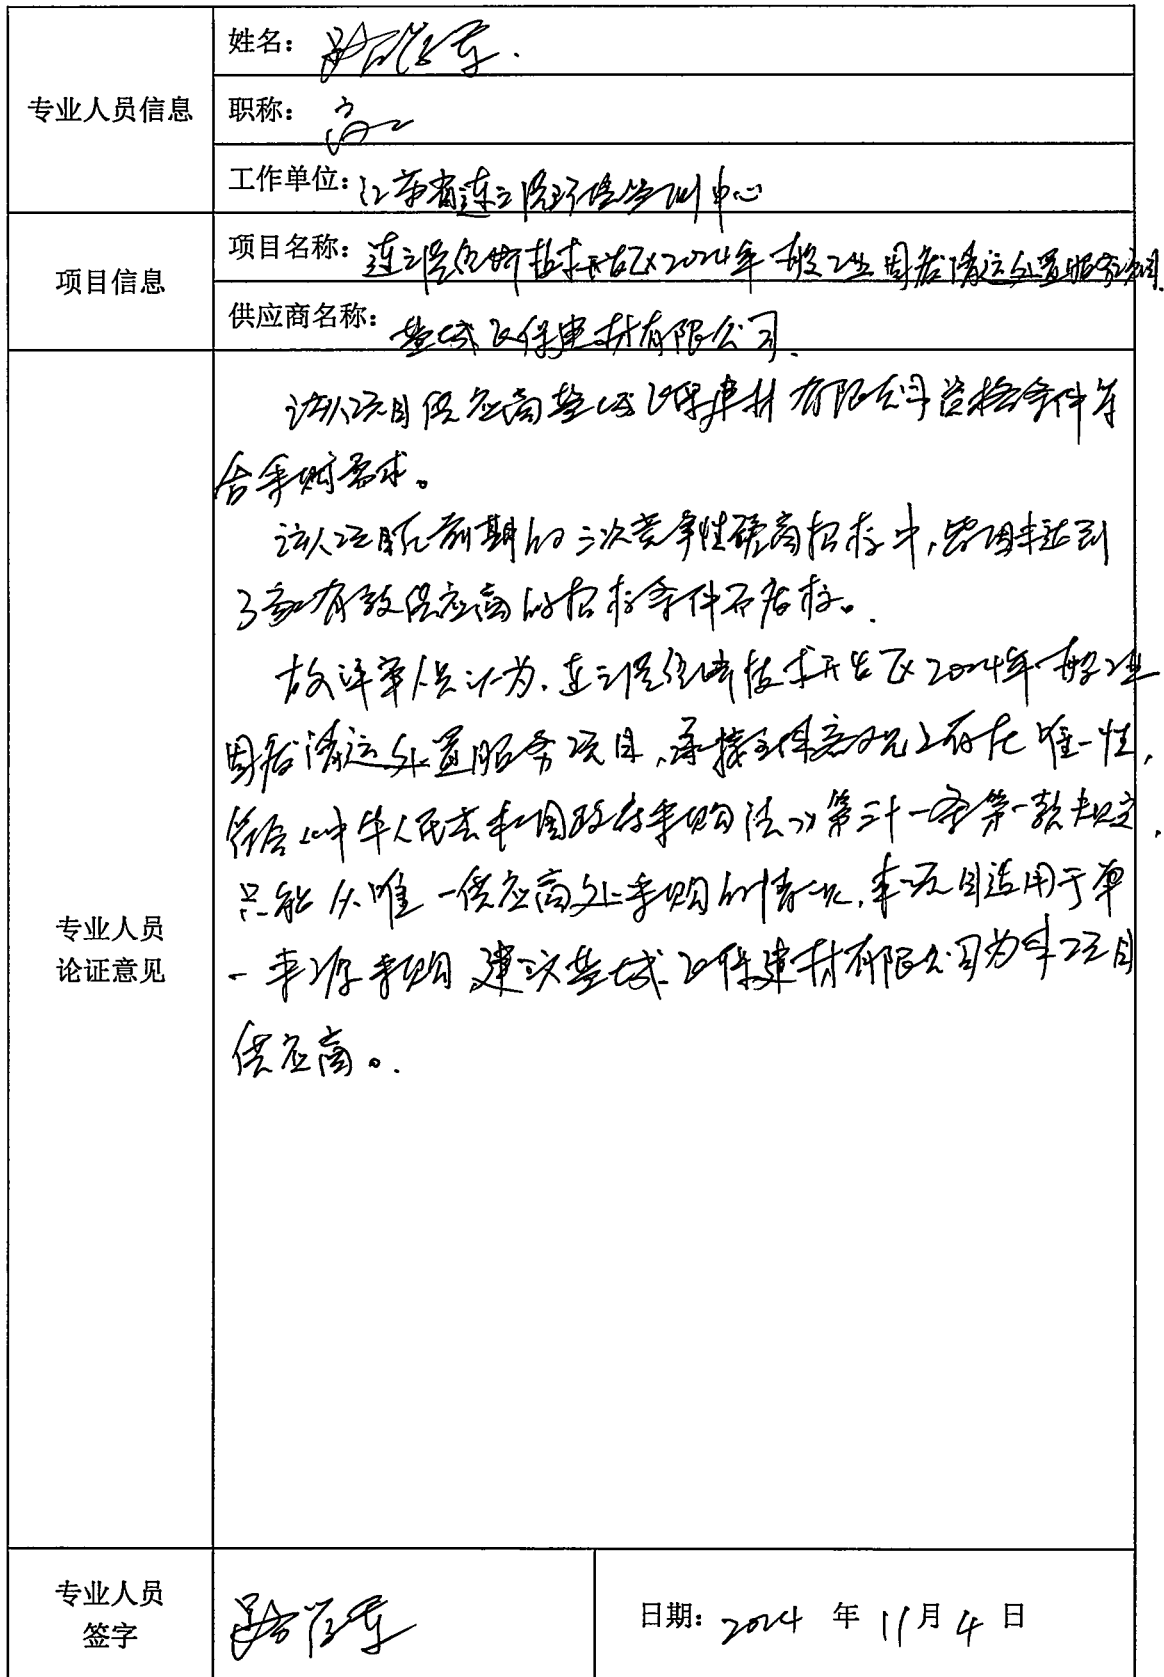 姓名：
专业人员信息
职称：高工
工作单位：江苏省连云港环境培训中心
项目信息
项目名称：连云港经济技术开发区2024年一般工业固废清运处置服务项目
供应商名称：盐城 保建材有限公司
该项目供应商盐城 保建材有限公司资格条件符
合采购需求。
该项目在前期的三次竞争性磋商招标中，皆因未达到
3家有效供应商的招标条件而废标。
故评审人员认为，连云港经济技术开发区2024年一般工业
固废清运处置服务项目，承接主体客观上存在唯一性，
符合《中华人民共和国政府采购法》第三十一条第一款规定，
只能从唯一供应商处采购的情况，本项目适用于单
一来源采购 建议盐城 保建材有限公司为本项目
供应商。
专业人员
论证意见
专业人员
签字
日期：2024 年 11月 4 日